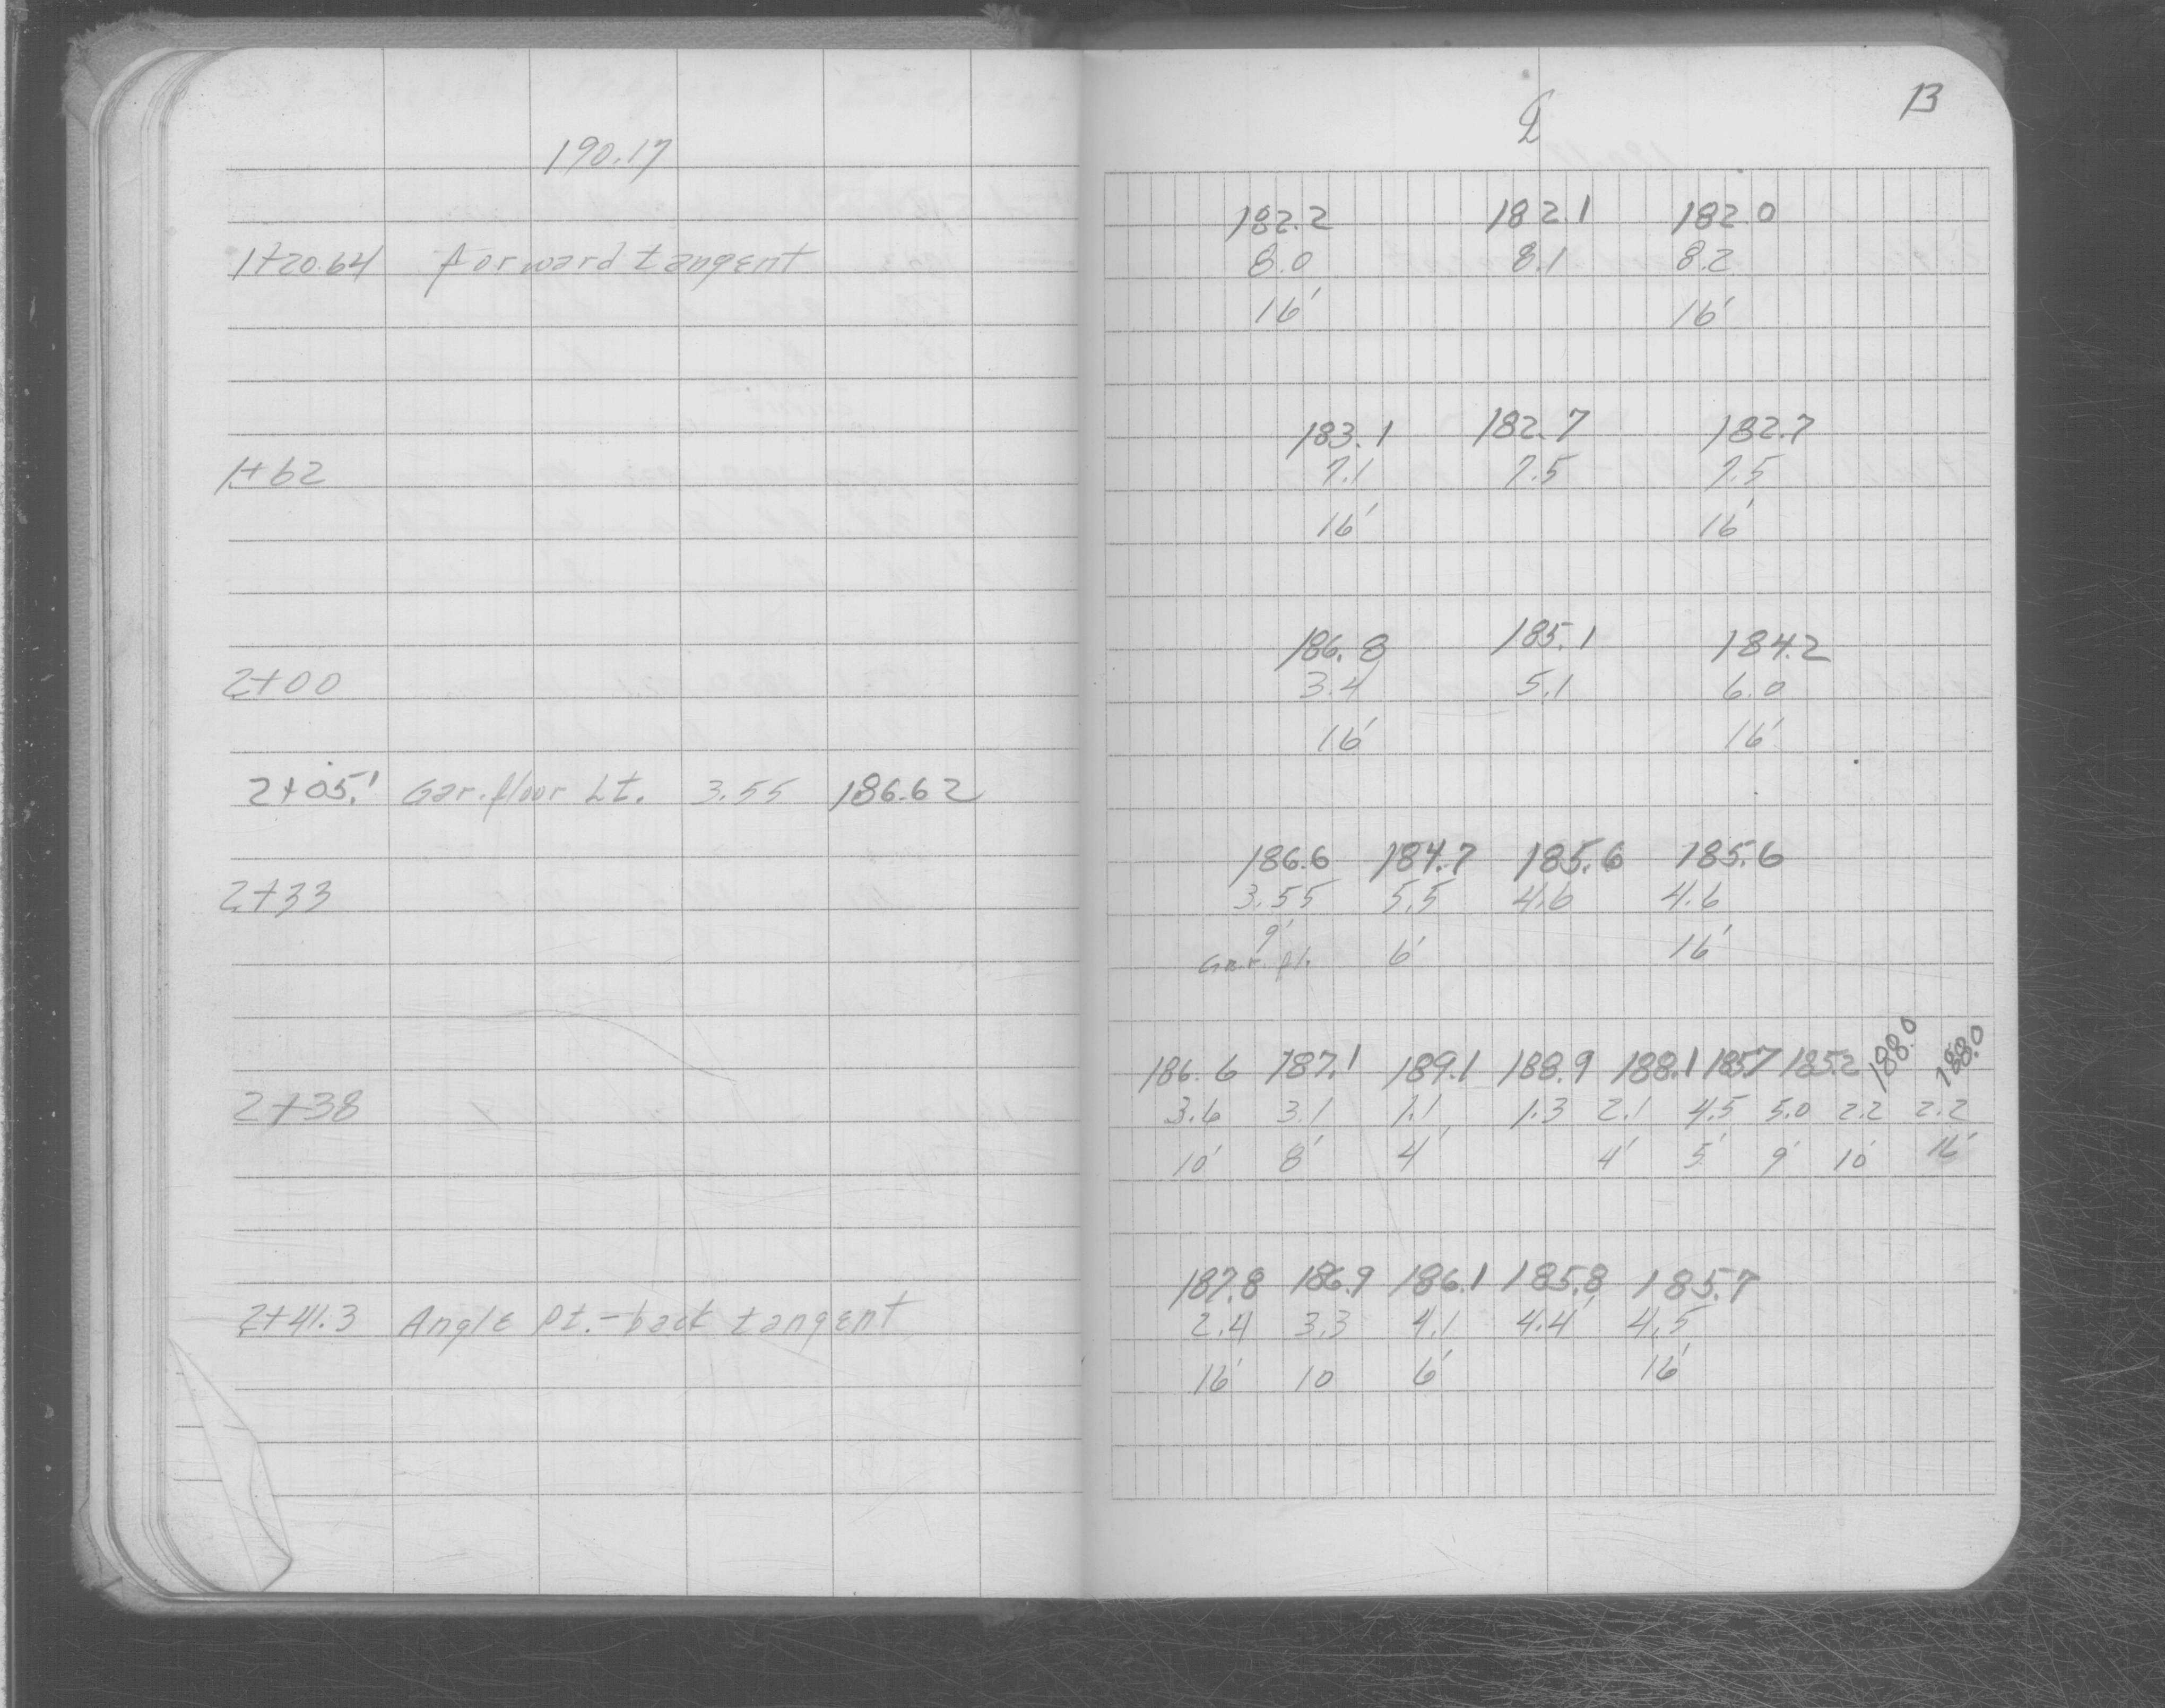 190.17
1+20.64 forward tangent
1+62
2+00
2+05.1 Gar. floor Lt. 3.55 186.62
2+33
2+38
2+41.3 Angle Pt. - back tangent
13
℄
182.2 182.1 182.0
8.0 8.1 8.2
16' 16'
183.1 182.7 182.7
7.1 7.5 7.5
16' 16'
186.8 185.1 184.2
3.4 5.1 6.0
16' 16'
186.6 184.7 185.6 185.6
3.55 5.5 4.6 4.6
9' 6' 16'
Gar. fl.
186.6 187.1 189.1 188.9 188.1 185.7 185.2 188.0 188.0
3.6 3.1 1.1 1.3 2.1 4.5 5.0 2.2 2.2
10' 8' 4' 4' 5' 9' 10' 16'
187.8 186.9 186.1 185.8 185.7
2.4 3.3 4.1 4.4 4.5
16' 10 6' 16'